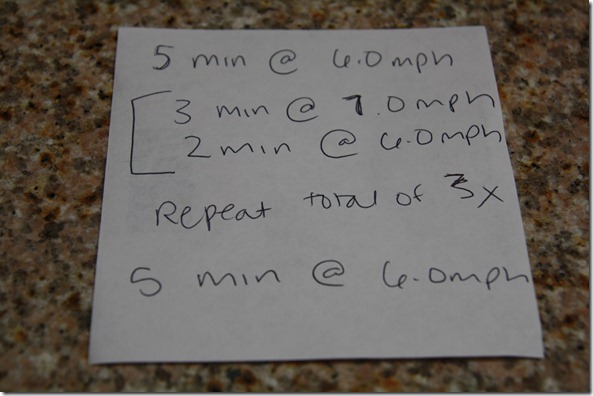 5 min @ 6.0mph
3 min @ 7.0mph
2 min @ 6.0mph
Repeat total of 3x
5 min @ 6.0mph